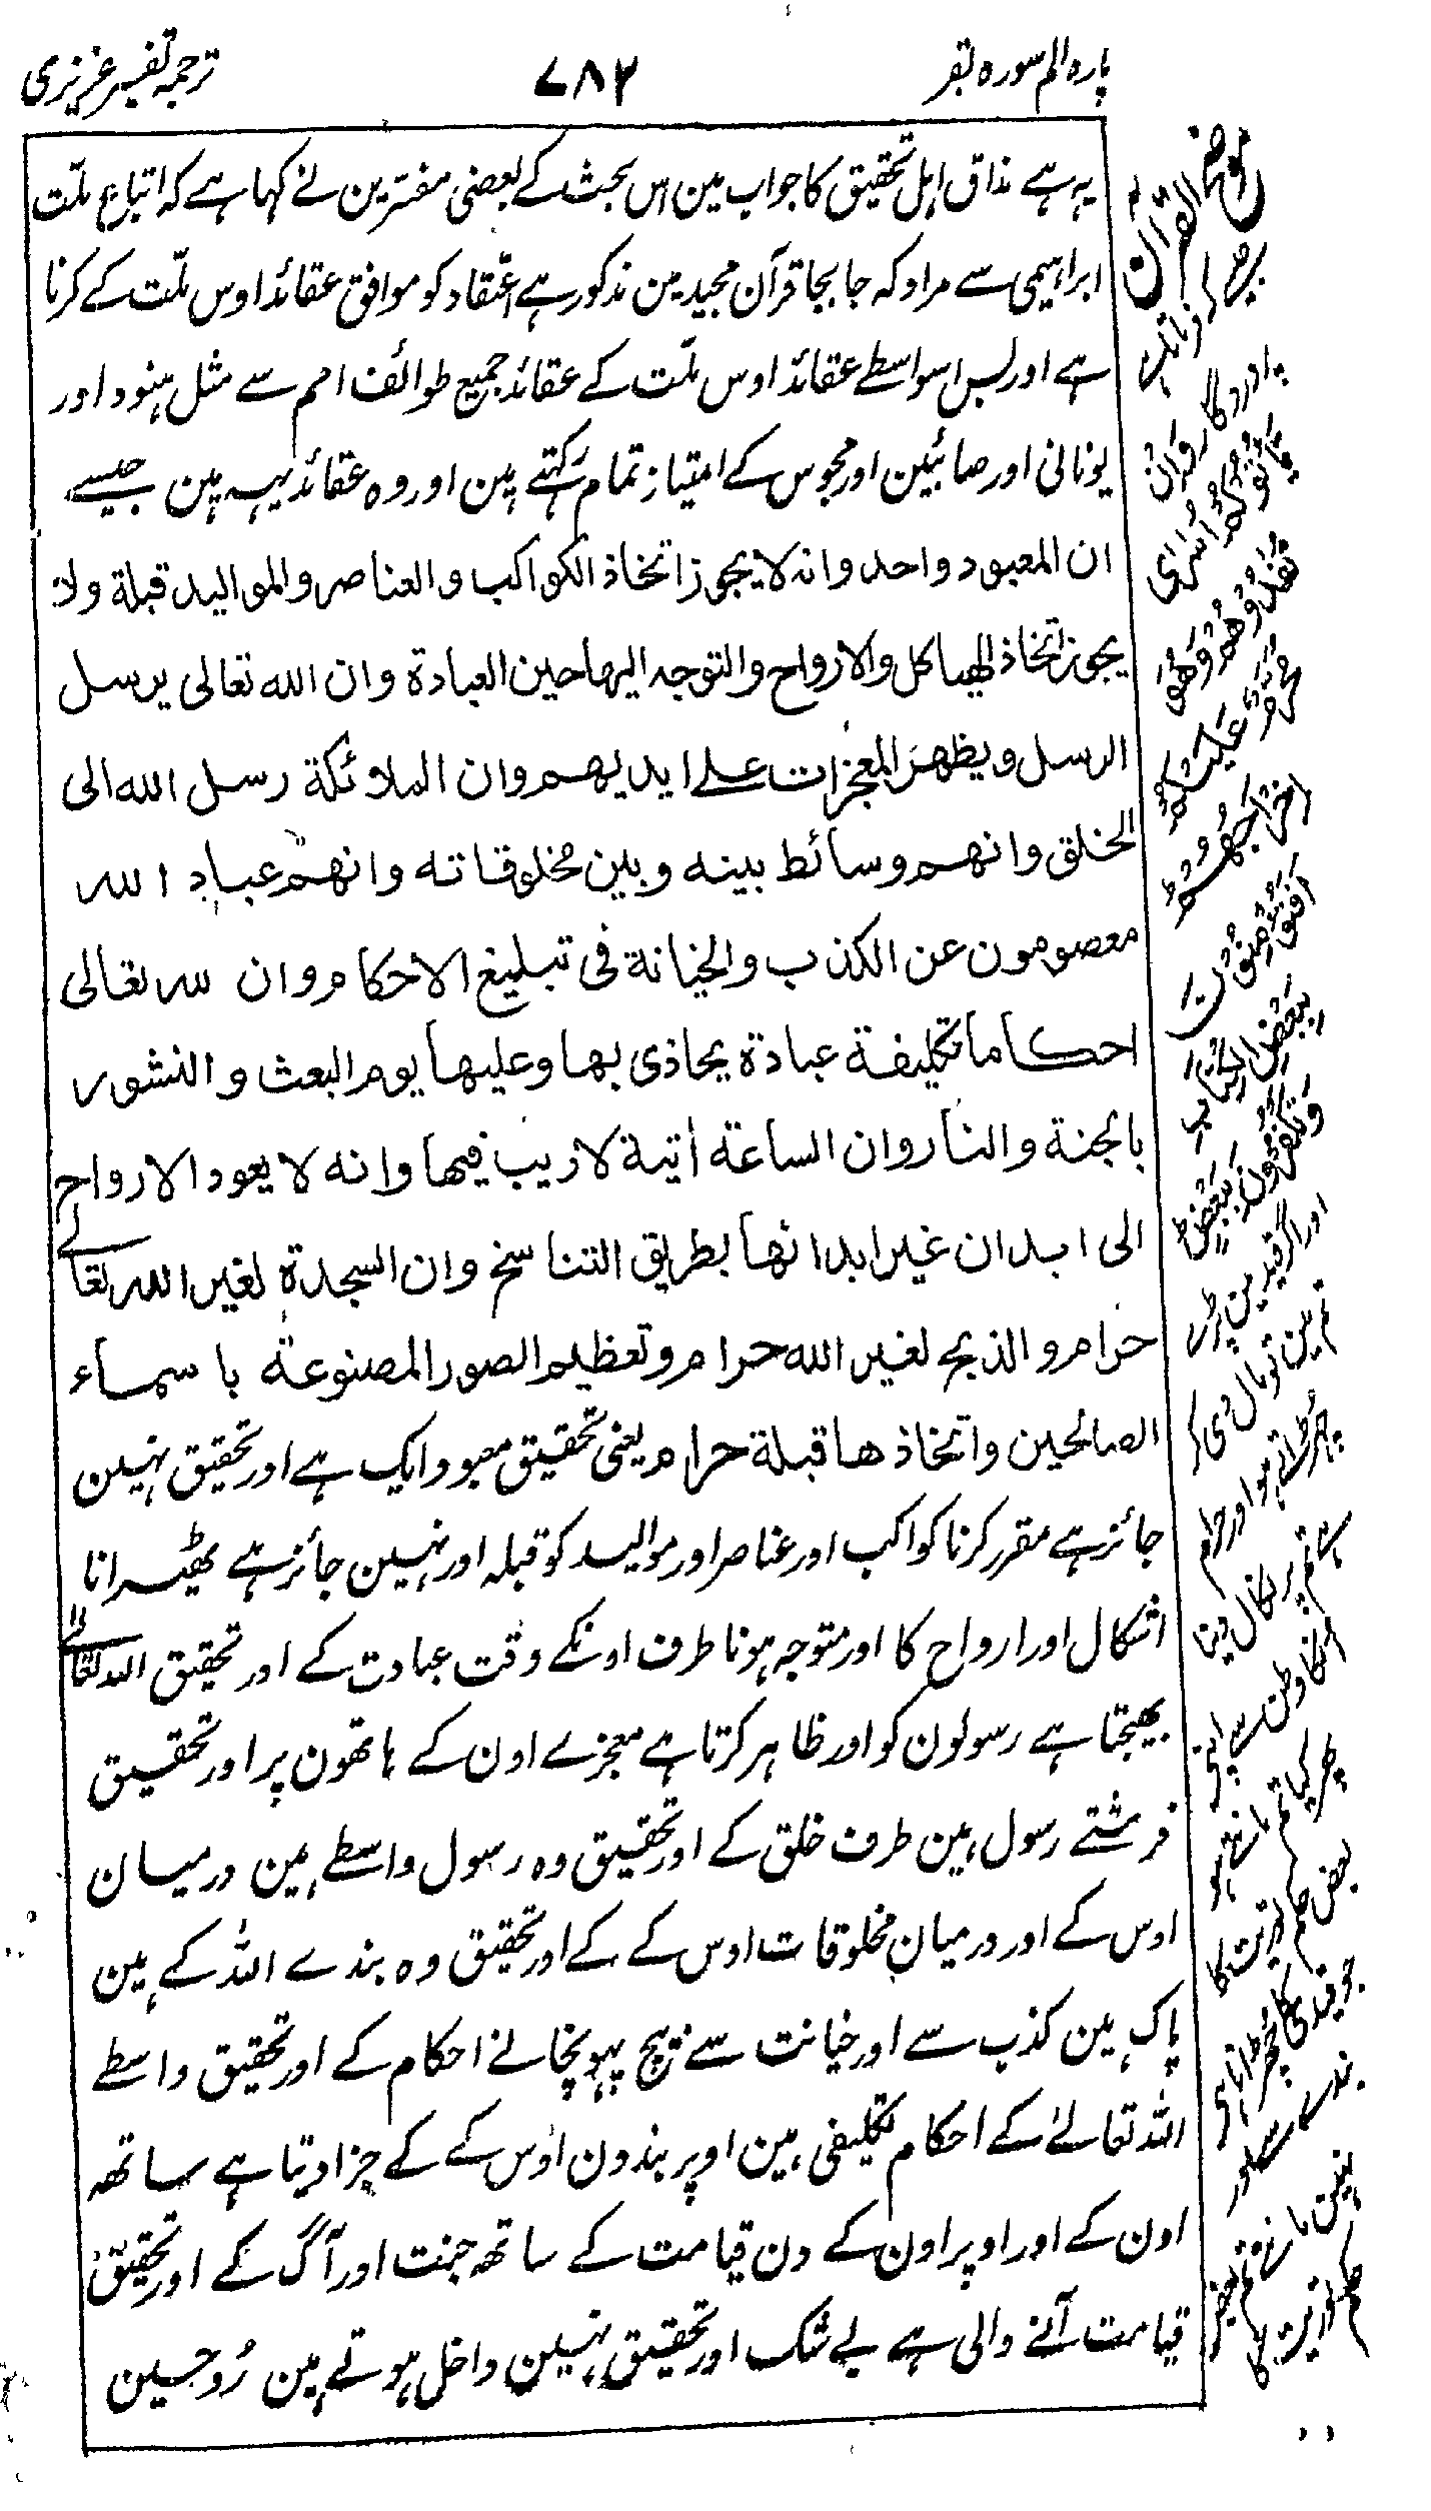 پاره الم سوره بقر
۷۸۲
ترجمہ تفسیر عزیزی
یہ ہے مذاق اہل تحقیق کا جواب مین اس بحث کے بعضی مفسّرین نے کہا ہے کہ اتباع ملّت
ابراہیمی سے مراد کہ جابجا قرآن مجید مین مذکور ہے اعتقاد کو موافق عقائد اوس ملّت کے کرنا
ہے اور بس اسواسطے عقائد اوس ملّت کے عقائد جمیع طوائف امم سے مثل ہنود اور
یونانی اور صابئین اور مجوس کے امتیاز تمام رکہتے ہین اور وہ عقائد یہہ ہین جیسے
ان المعبود واحد وانه لا يجوز اتخاذ الكواكب والعناصر والمواليد قبلة ولا
يجوز اتخاذ الهياكل والارواح والتوجه اليها حين العبادة وان الله تعالى يرسل
الرسل ويظهر المعجزات على ايديهم وان الملائكة رسل الله الى
الخلق وانهم وسائط بينه وبين مخلوقاته وانهم عباد الله
معصومون عن الكذب والخيانة فى تبليغ الاحكام وان لله تعالى
احكاما تكليفة عبادة يجازى بها وعليها يوم البعث والنشور
بالجنة والنار وان الساعة اتية لا ريب فيها وانه لا يعود الارواح
الى ابدان غير ابدانها بطريق التناسخ وان السجدة لغير الله تعالے
حرام والذبح لغير الله حرام وتعظيم الصور المصنوعة باسماء
الصالحين واتخاذها قبلة حرام یعنی تحقیق معبود ایک ہے اور تحقیق نہین
جائز ہے مقرر کرنا کواکب اور عناصر اور موالید کو قبلہ اور نہین جائز ہے ٹھیرانا
اشکال اور ارواح کا اور متوجہ ہونا طرف اونکے وقت عبادت کے اور تحقیق اللہ تعالےٰ
بھیجتا ہے رسولون کو اور ظاہر کرتا ہے معجزے اون کے ہاتھون پر اور تحقیق
فرشتے رسول ہین طرف خلق کے اور تحقیق وہ رسول واسطے ہین درمیان
اوس کے اور درمیان مخلوقات اوس کے کے اور تحقیق وہ بندے اللہ کے ہین
پاک ہین کذب سے اور خیانت سے بیچ پہونچانے احکام کے اور تحقیق واسطے
اللہ تعالےٰ کے احکام تکلیفی ہین اوپر بندون اوس کے کے جزا دیتا ہے ساتھ
اون کے اور اوپر اون کے دن قیامت کے ساتھ جنت اور آگ کے اور تحقیق
قیامت آنے والی ہے بے شک اور تحقیق نہین داخل ہوتے ہین رُوحین
موضح القرآن
اُسٰرٰى
تُفٰدُوْهُمْ وَهُوَ
مُحَرَّمٌ عَلَيْكُمْ
اِخْرَاجُهُمْ
اَفَتُؤْمِنُوْنَ
بِبَعْضِ الْكِتٰبِ
وَتَكْفُرُوْنَ بِبَعْضٍ